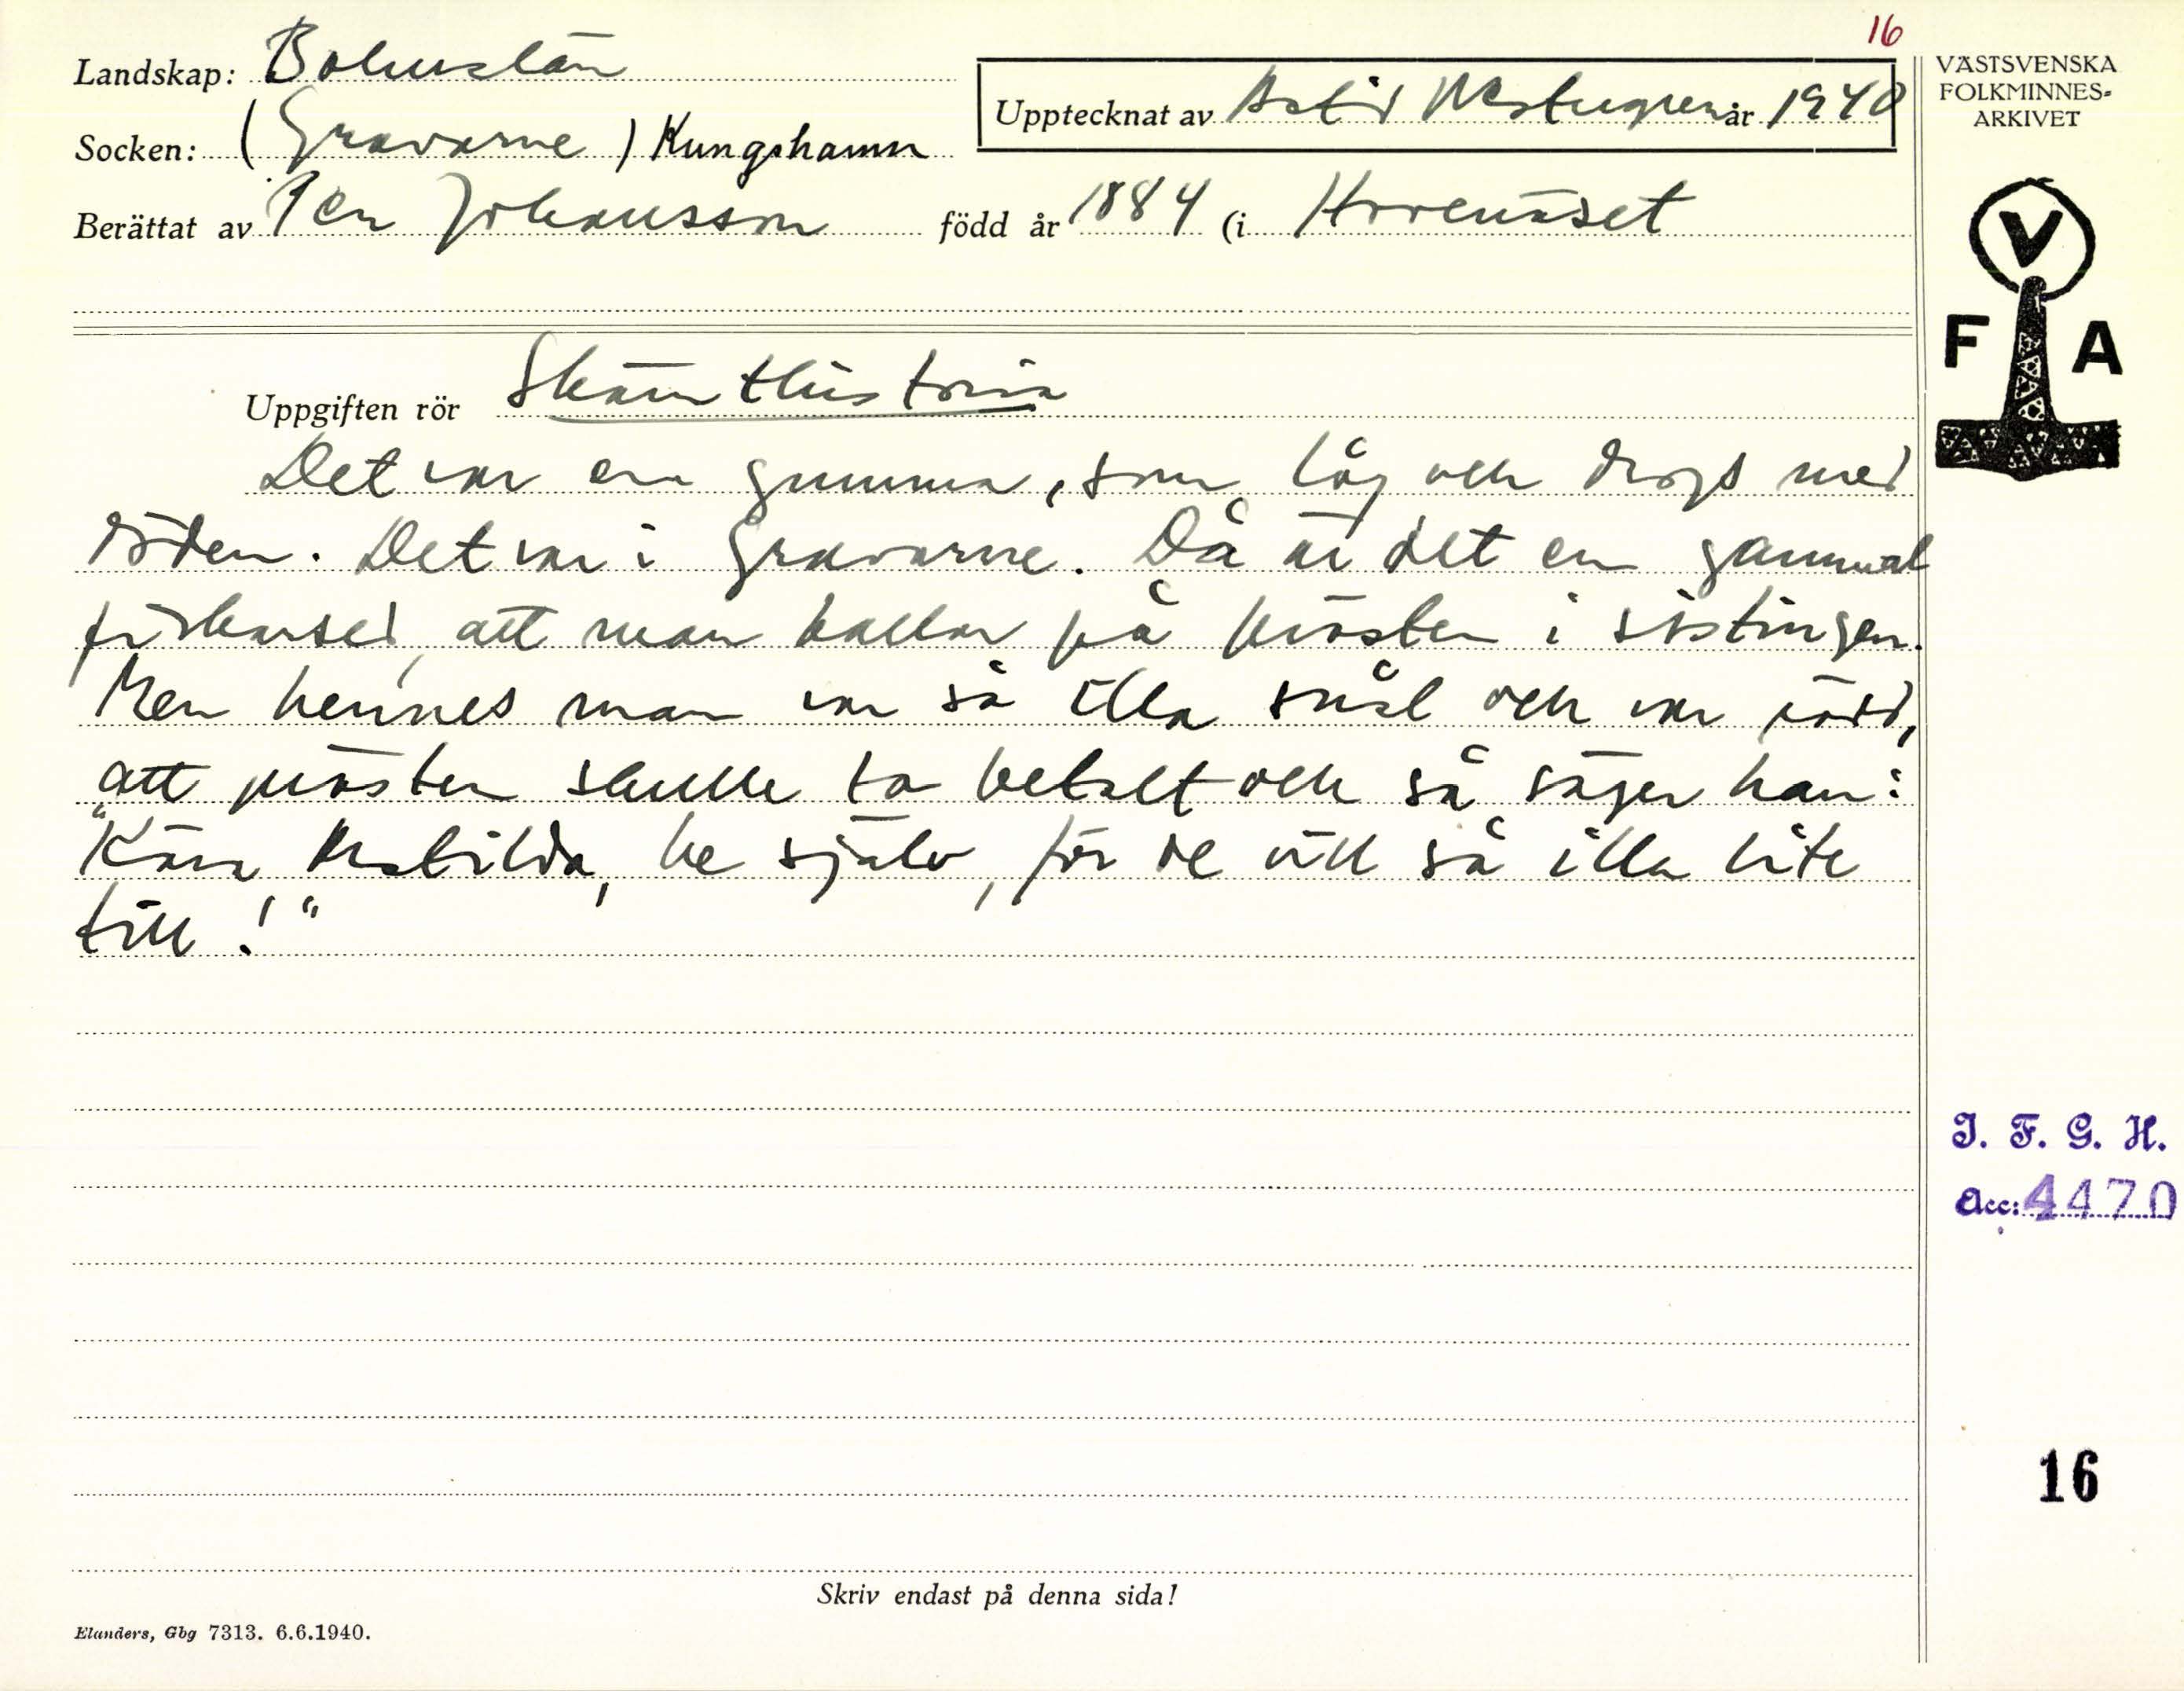 16
Landskap: Bohuslän
Upptecknat av Astrid Westergren år 1940
Socken: (Gravarne) Kungshamn
Berättat av Per Johansson född år 1884 (i Hovenäset
VÄSTSVENSKA
FOLKMINNES-
ARKIVET
V
F A
Uppgiften rör Skämthistoria
Det var en gumma, som låg och drogs med
döden. Det var i Gravarne. Då är det en gammal
fiskarsed, att man kallar på prästen i sistingen.
Men hennes man var så illa snål och var rädd,
att prästen skulle ta betalt och så säger han:
"Kära Matilda, be själv, för de vill så illa lite
till!"
I. F. G. H.
Acc: 4470
16
Skriv endast på denna sida!
Elanders, Gbg 7313. 6.6.1940.